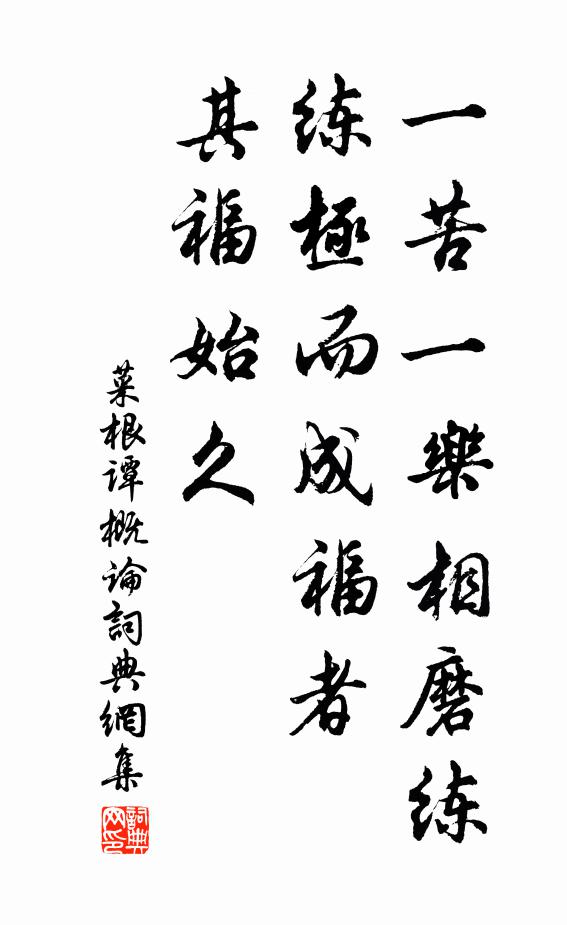 一苦一樂相磨练
练極而成福者
其福始久
菜根谭概论詞典網集
詞典
网印